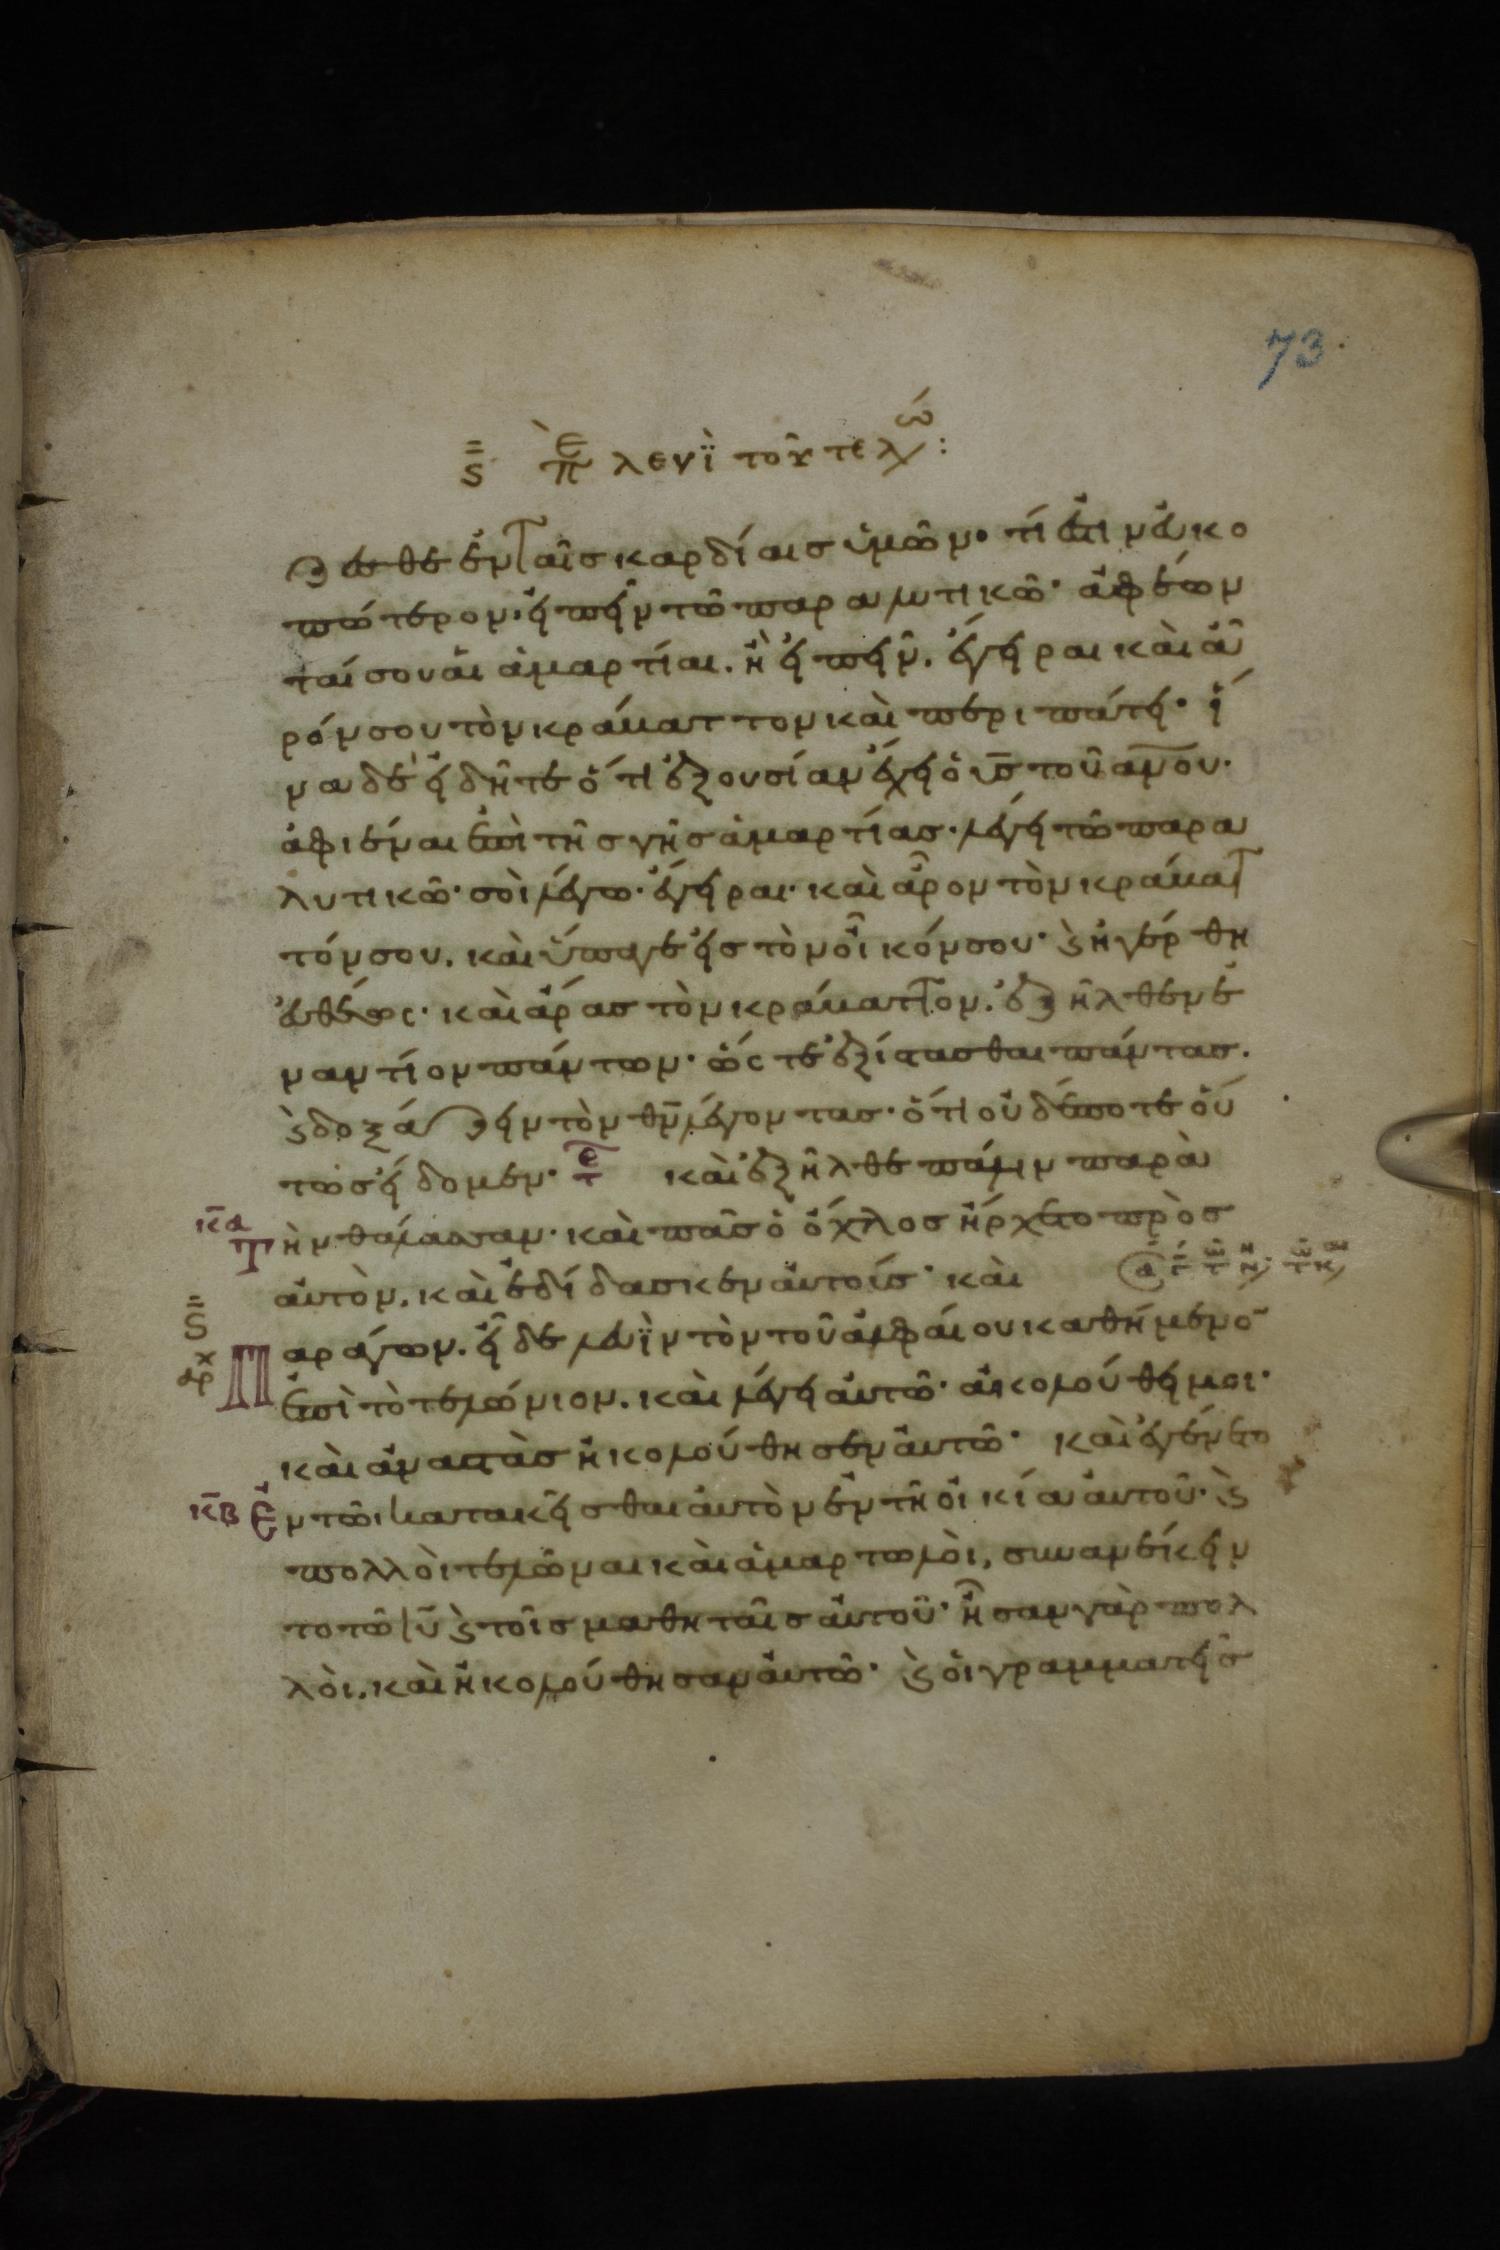 73
ς Πε λευϊ τοῦ τελώ:
ζεσθε ἐν ταῖς καρδίαις ὑμῶν· τί ἐστιν εὐκο
πώτερον· εἰπεῖν τῶ παραλυτικῶ· ἀφέων
ταί σου αἱ ἁμαρτίαι. ἢ εἰπεῖν. ἔγειραι καὶ ἆ
ρόν σου τὸν κράβαττον καὶ περιπάτει· ἵ
να δὲ εἰδῆτε ὅτι ἐξουσίαν ἔχει ὁ υς τοῦ ανου·
ἀφιέναι ἐπὶ τῆς γῆς ἁμαρτίας· λέγει τῶ παρα
λυτικῶ· σοὶ λέγω· ἔγειραι· καὶ ἆρον τὸν κράβατ
τόν σου. καὶ ὕπαγε εἰς τὸν οἶκόν σου· ϗ ἠγέρθη
εὐθέως· καὶ ἄρας τὸν κράβαττον. ἐξῆλθεν ἐ
ναντίον πάντων· ὥς τε ἐξίστασθαι πάντας.
ϗ δοξάζειν τὸν θν λέγοντας· ὅτι οὐδέποτε οὕ
τως εἴδομεν· τε καὶ ἐξῆλθε πάλιν παρὰ
κα Τὴν θάλασσαν· καὶ πᾶς ὁ ὄχλος ἤρχετο πρὸς
αὐτὸν. καὶ ἐδίδασκεν αὐτοίς· καὶ
ς αρχ Παράγων. εἶδε λευϊν τὸν τοῦ ἀλφαίου καθήμενο
ἐπὶ τὸ τελώνιον. καὶ λέγει αὐτῶ· ἀκολούθει μοι·
καὶ ἀναστὰς ἠκολούθησεν αὐτῶ· καὶ ἐγένετο
κβ Ἐν τῶι κατακεῖσθαι αὐτὸν ἐν τῆ οἰκία αὐτοῦ· ϗ
πολλοὶ τελῶναι καὶ ἁμαρτωλὸι, συνανέκειν
το τῶ ιυ ϗ τοῖς μαθηταῖς αὐτοῦ· ἦσαν γὰρ πολ
λὸι. καὶ ἠκολούθησαν αὐτῶ· ϗ ὁι γραμματεῖς